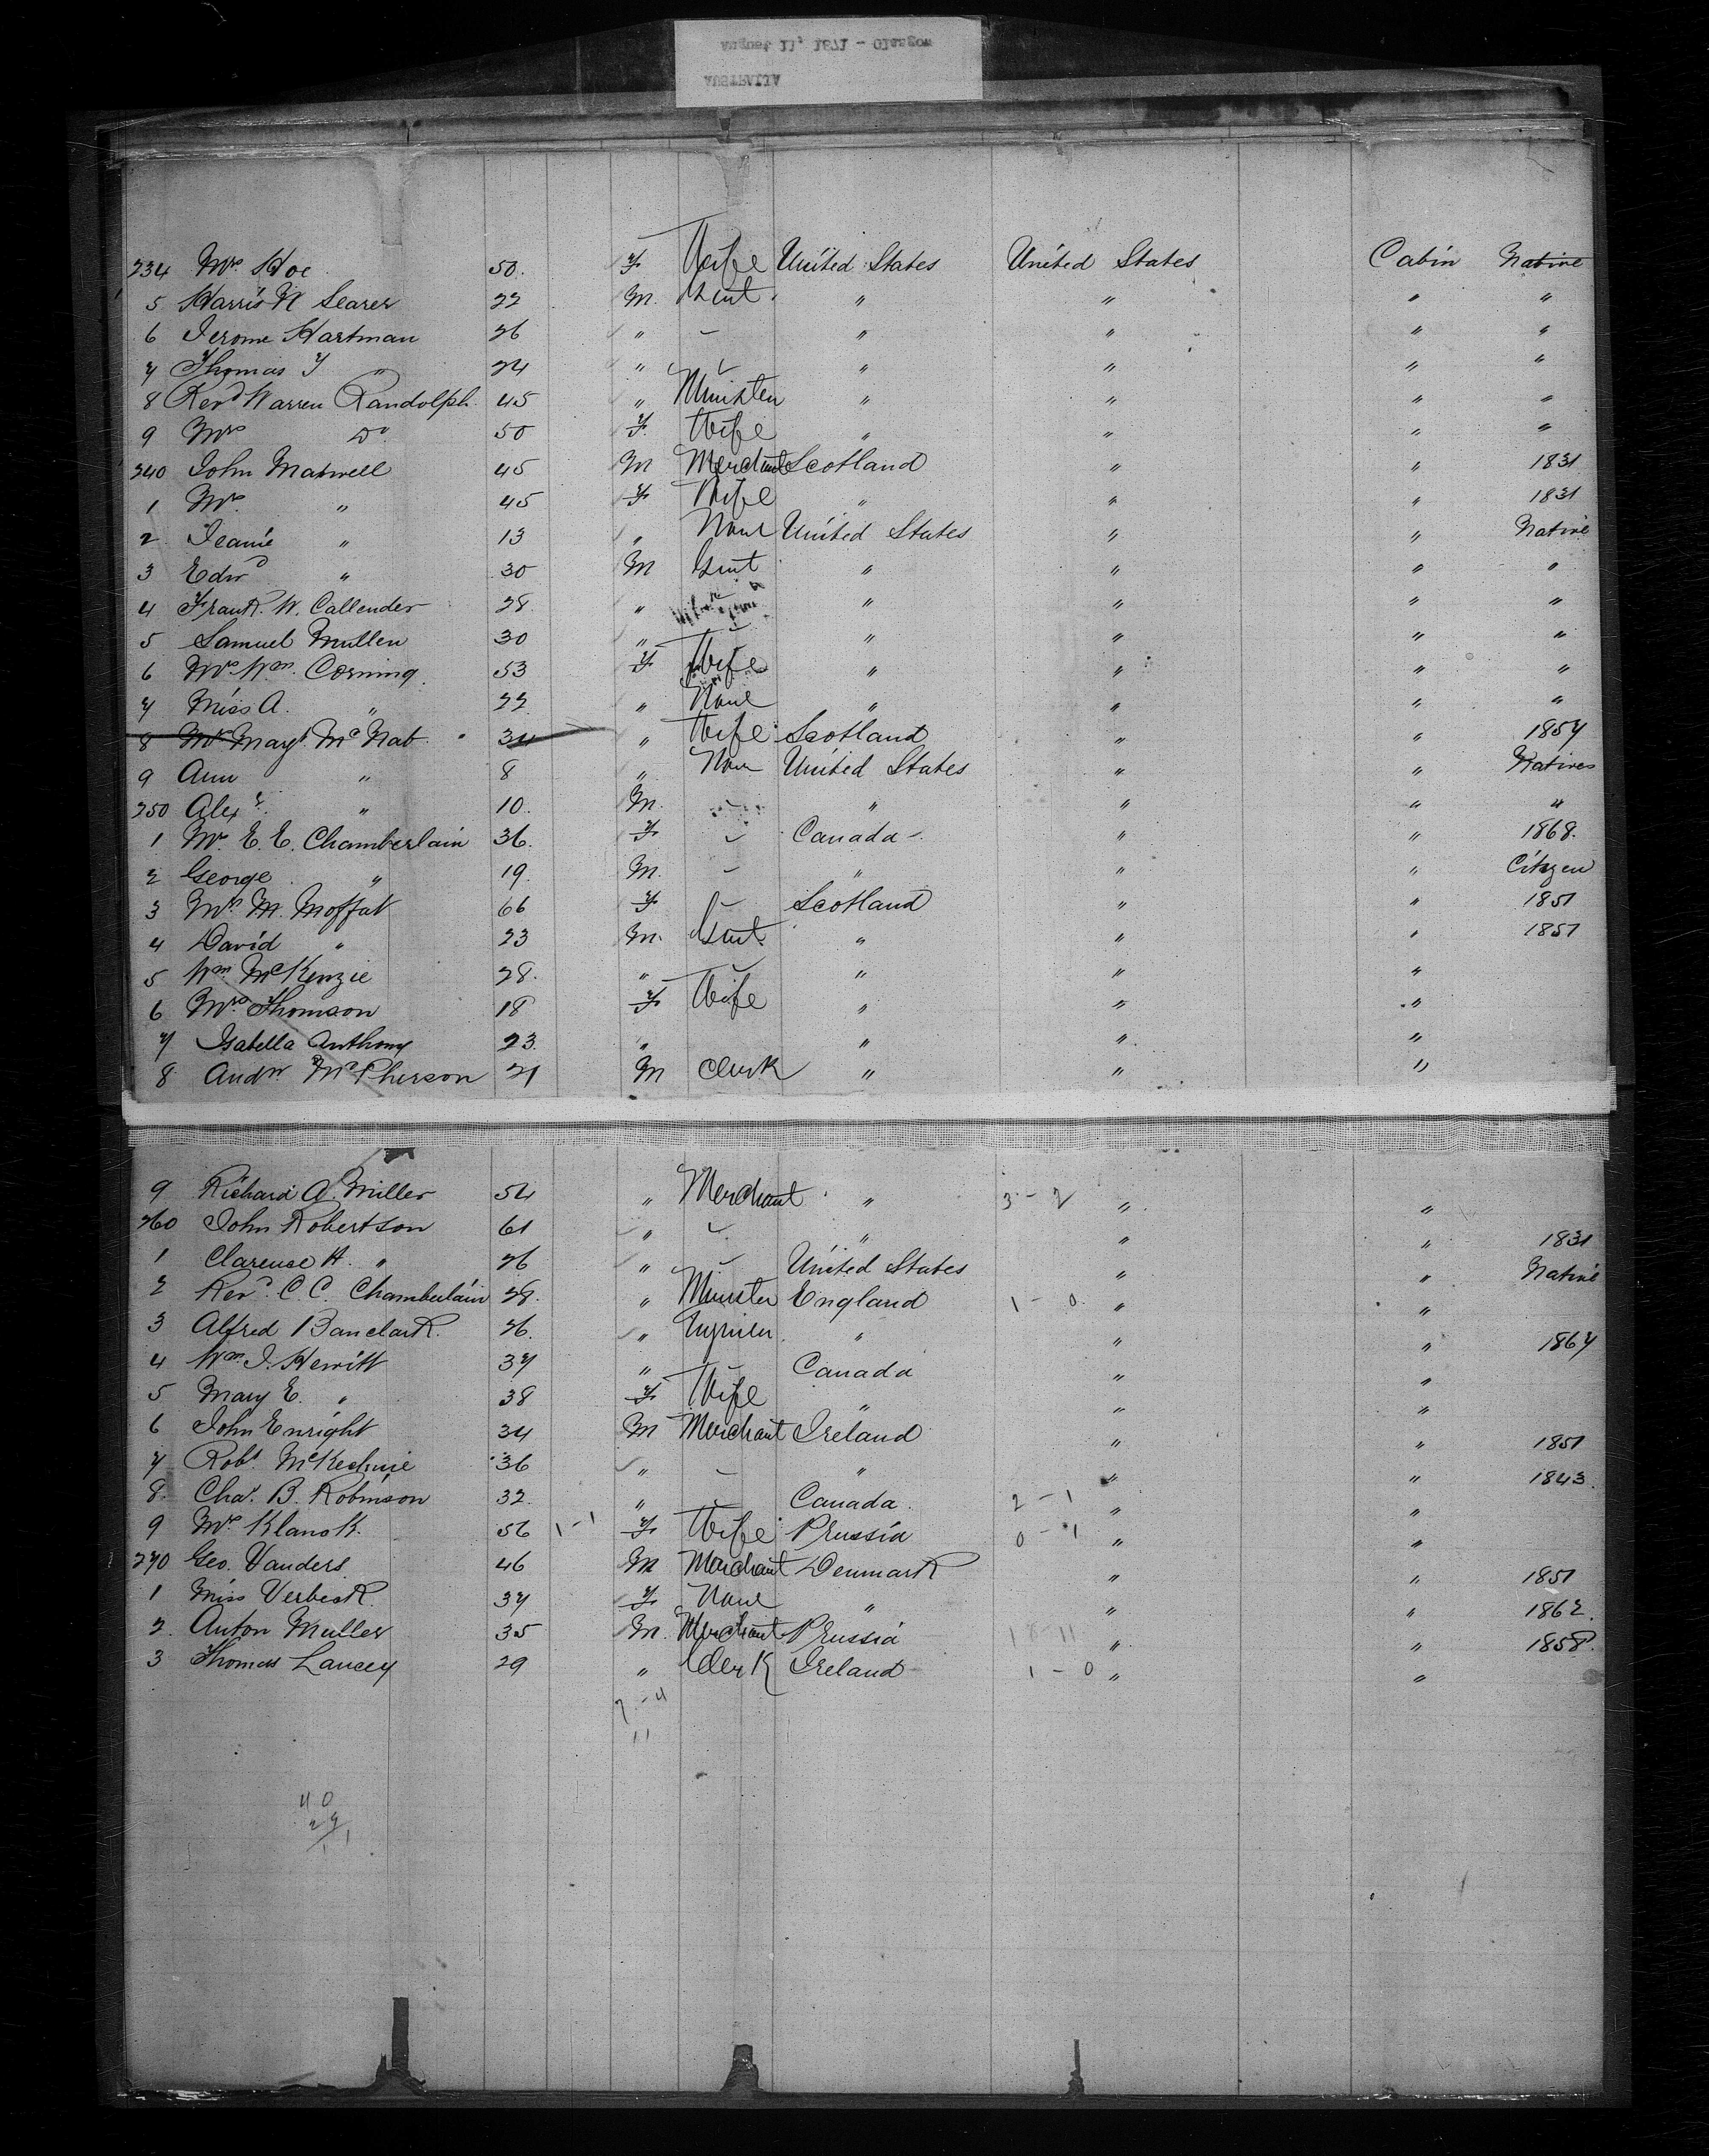 AUSTRALIA
August 11, 1871 - Glasgow
234 Mrs Hoe 50. F Wife United States United States Cabin Native
5 Harris N Searer 22 M. Gent " " " "
6 Jerome Hartman 26 " - " " " "
7 Thomas J " 24 " - " " " "
8 Revd Warren Randolph. 45 " Minister " " " "
9 Mrs Do 50 F. Wife " " " "
240 John Maxwell 45 M Merchant Scotland " " 1831
1 Mrs " 45 F Wife " " " 1831
2 Jeanie " 13 " None United States " " Native
3 Edwd " 30 M Gent " " " "
4 Frank. W. Callender 28 " " " " "
5 Samuel Mullen 30 " - " " " "
6 Mrs Wm. Corning 53 F Wife " " " "
7 Miss A. " 22 " None " " " "
8 Mrs Mary McNab 34 " Wife Scotland " " 1857
9 Ann " 8 " None United States " " Natives
250 Alexr. " 10. M. - " " " "
1 Mrs E. E. Chamberlain 36. F - Canada " " 1868.
2 George " 19. M. - " " " Citizen
3 Mrs M. Moffat 66 F - Scotland " " 1851
4 David " 23 M. Gent " " " 1851
5 Wm McKenzie 28. " - " " "
6 Mrs Thomson 18 F Wife " " "
7 Isabella Anthony 23. " " " "
8 Andw McPherson 21 M Clerk " " "
9 Richard A. Miller 54 " Merchant " 3-2 " "
260 John Robertson 61 " - " " " 1831
1 Clarence H. " 26 " - United States " " Native
2 Revd. C. C. Chamberlain 28. " Minister England 1-0 " "
3 Alfred Banclark. 26. " " " " 1867
4 Wm. J. Hewitt 37 " - Canada " "
5 Mary E. " 38 F Wife " " "
6 John Enright 34 M Merchant Ireland " " 1851
7 Robt. McKechnie 36 " - " " " 1843
8. Chas. B. Robinson 32. " - Canada 2-1 " "
9 Mrs Klanok. 56 1-1 F Wife Prussia 0-1 " "
270 Geo. Vanders 46 M Merchant Denmark " " 1851
1 Miss Verbeck. 37 F None " " " 1862.
2. Anton Muller 35 M. Merchant Prussia " " 1858.
3 Thomas Lancey 29 " Clerk Ireland 1-0 " "
7-4
11
40
29